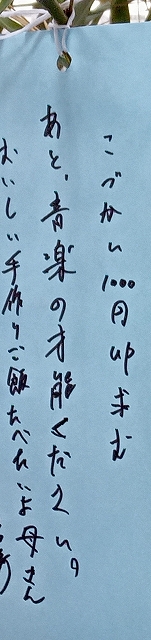 こづかい1000円up求む
あと、音楽の才能ください。
おいしい手作りご飯たべたいよ母さん